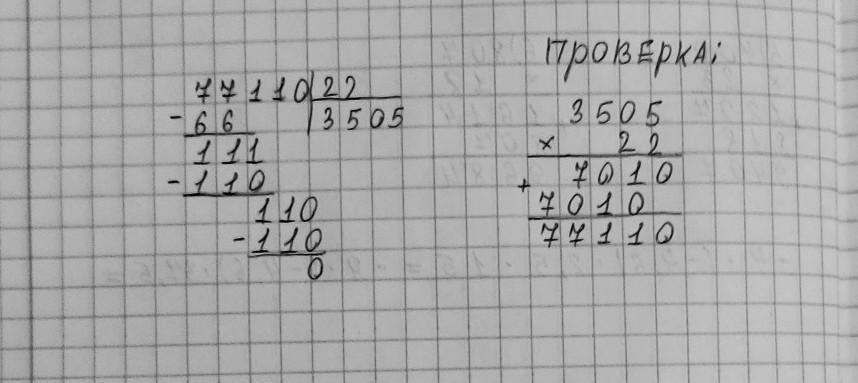 77110|22
-66 |3505
111
-110
110
-110
0
ПРОВЕРКА:
3505
× 22
+ 7010
7010
77110